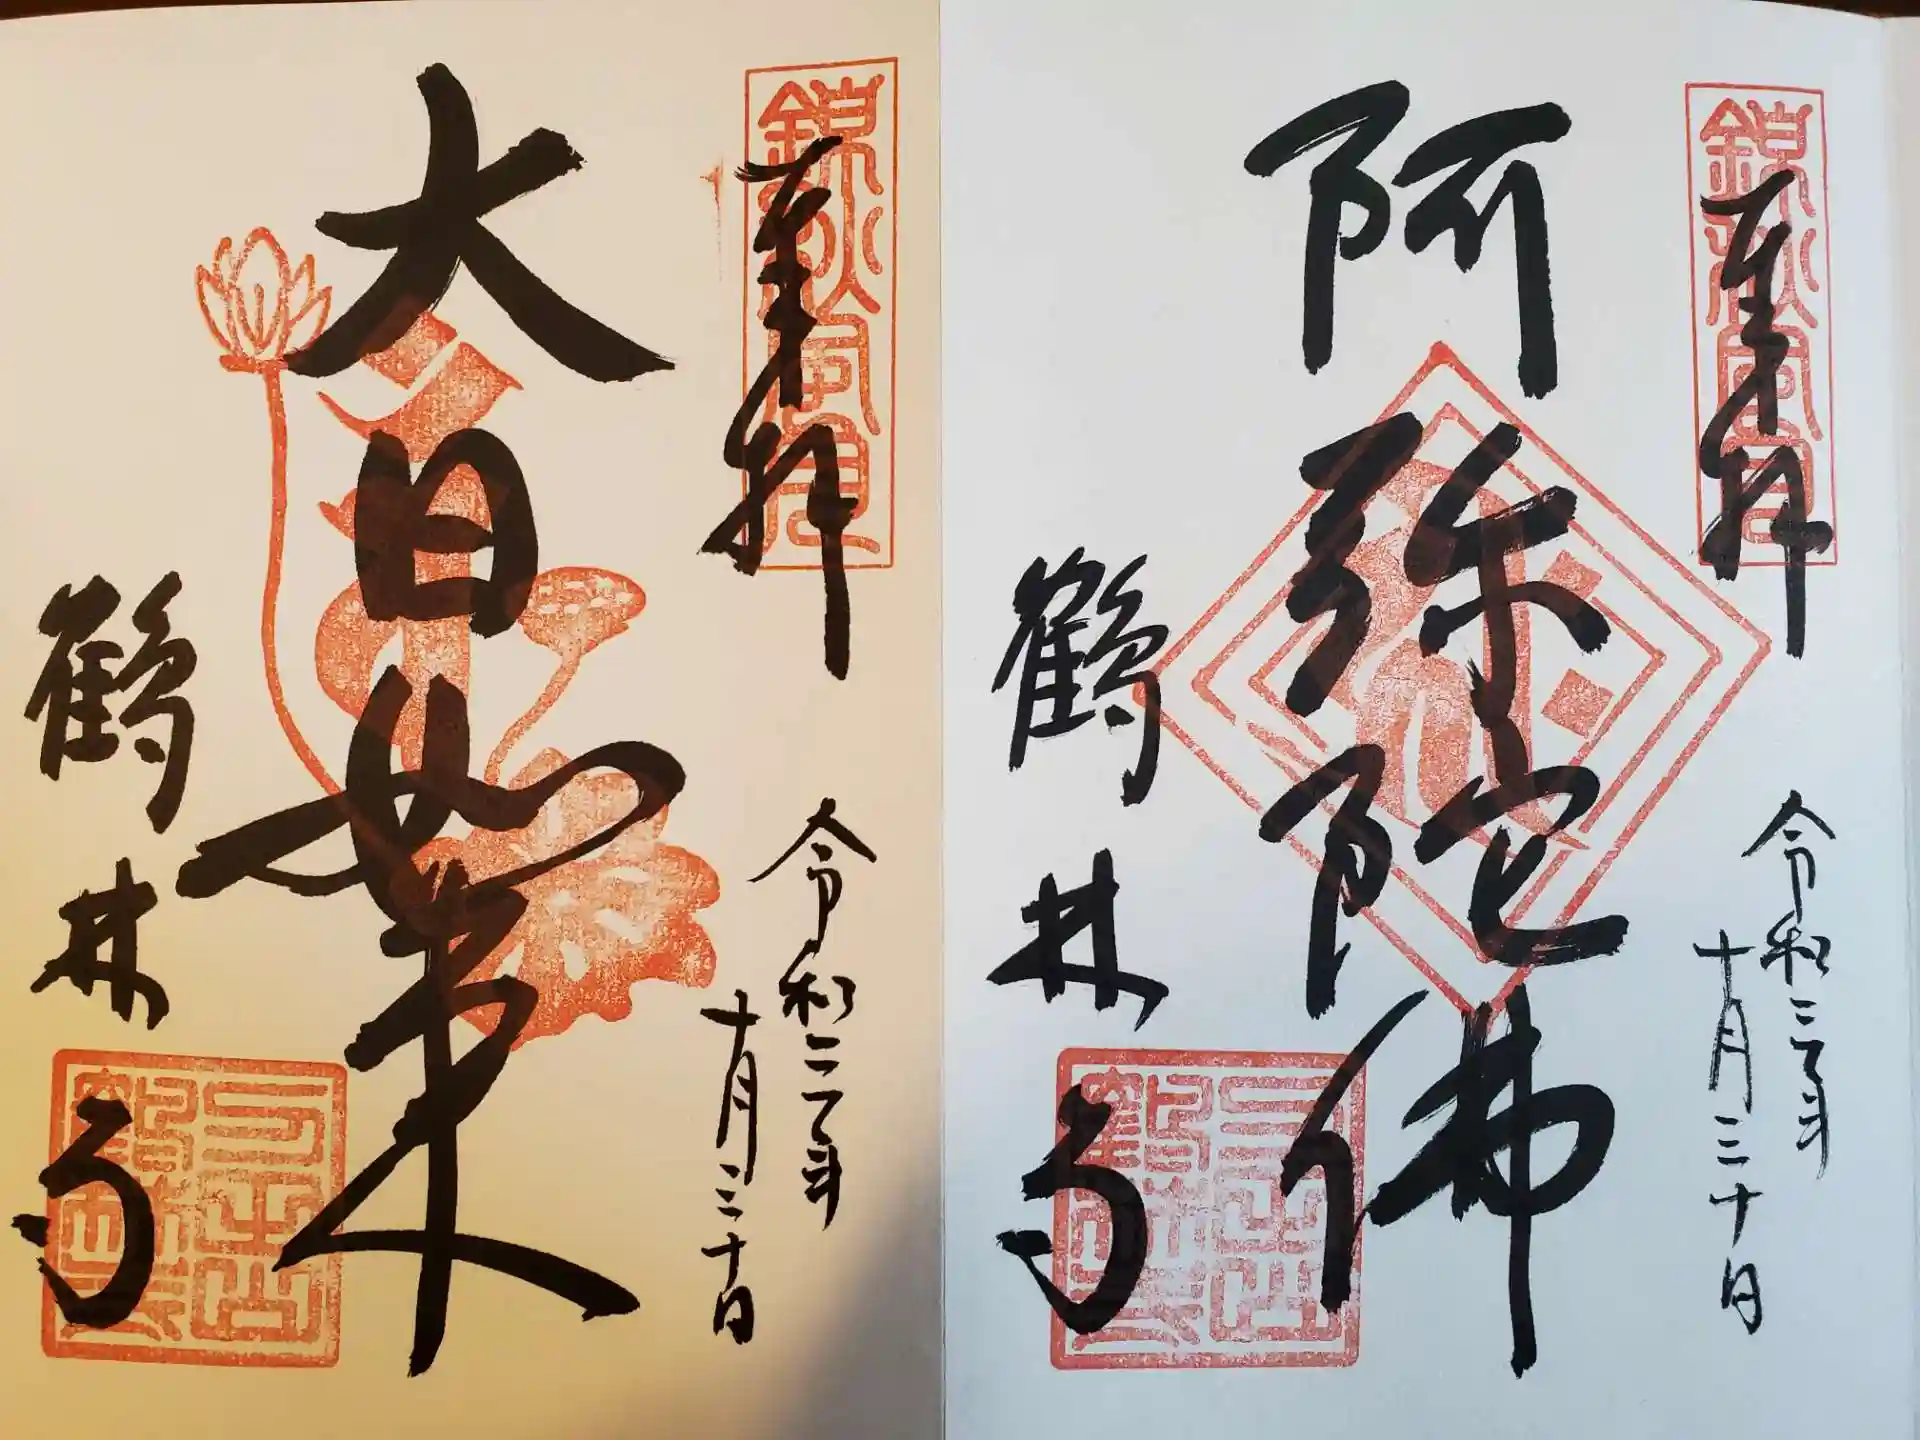 奉拝
令和二年
十月三十日
阿弥陀佛
鶴林寺
奉拝
令和二年
十月三十日
大日如来
鶴林寺